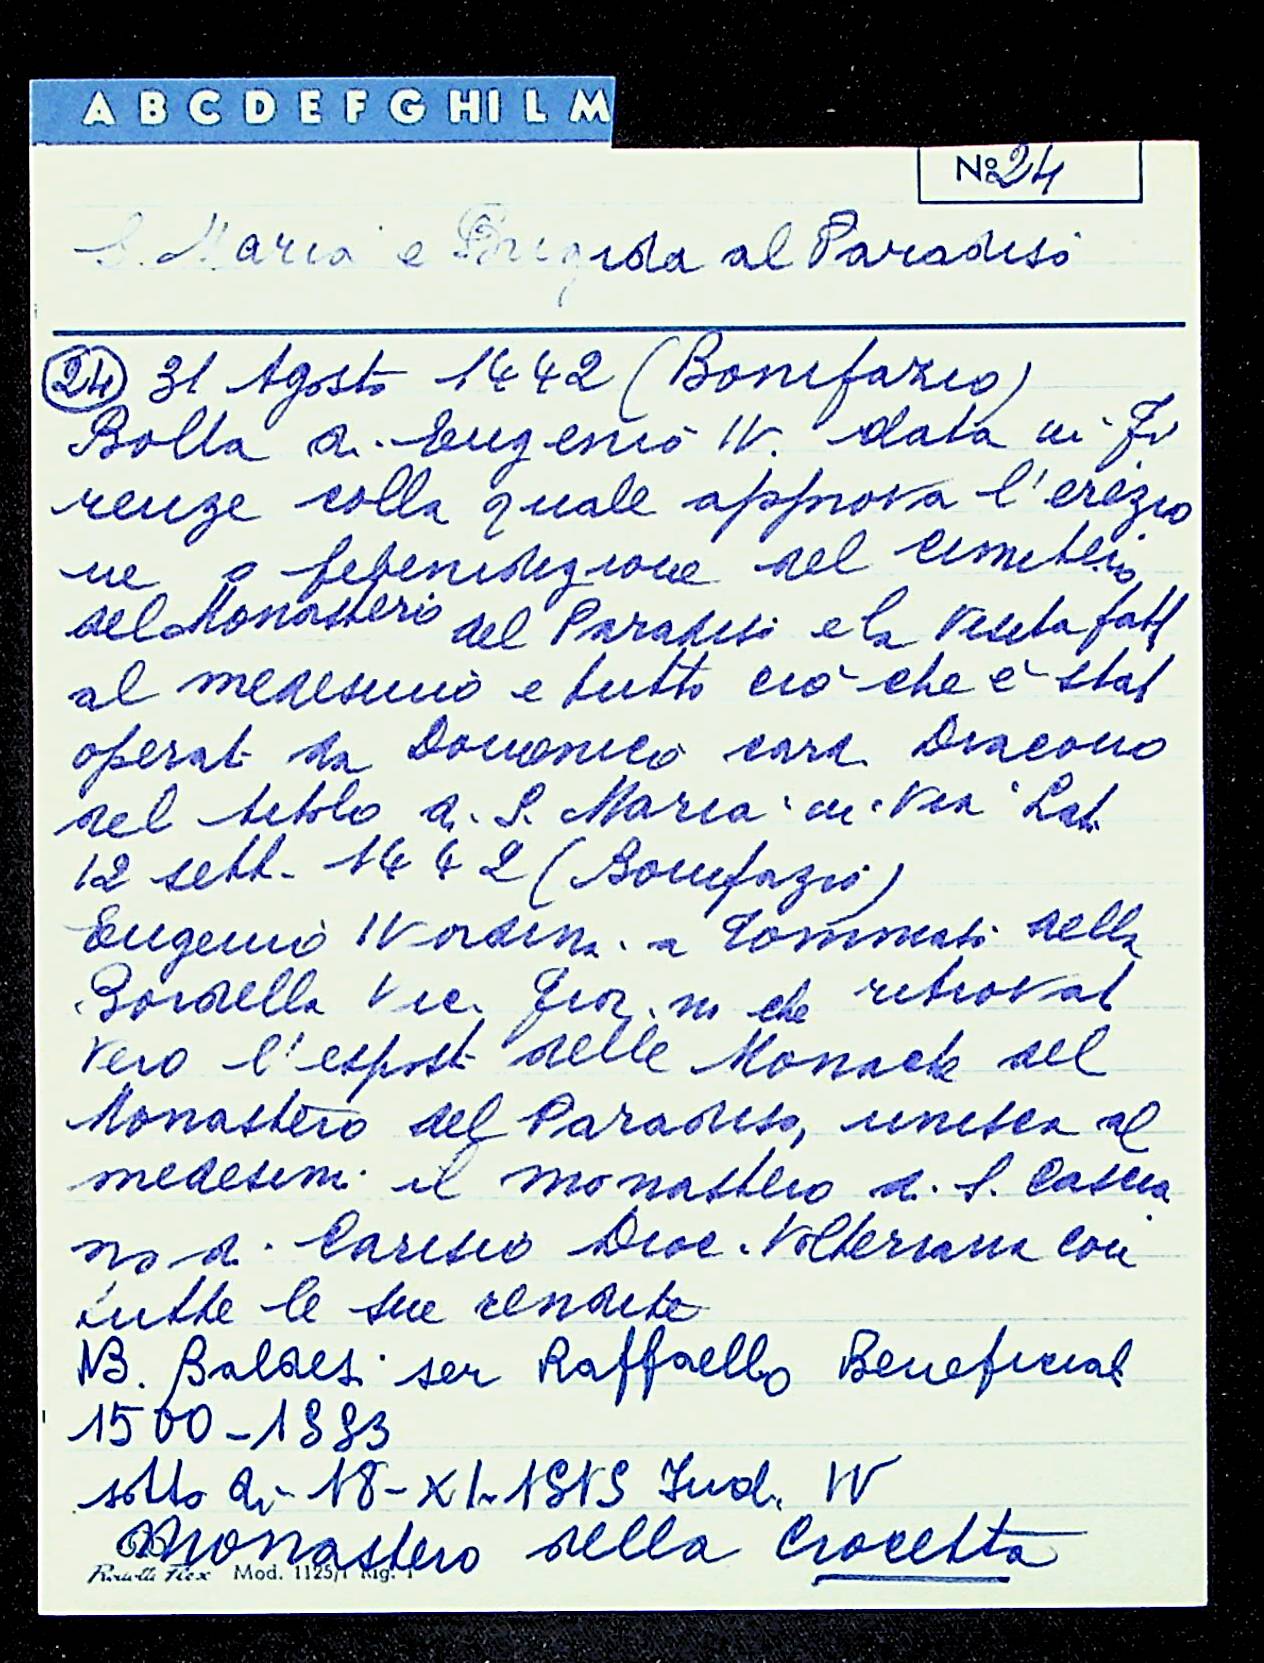 A B C D E F G HI L M
No 24
S. Maria e Brigida al Paradiso
24 31 Agosto 1442 (Bonifazio)
Bolla di Eugenio IV. data in Fi
renze colla quale approva l'erezio
ne e del Cimitero
del Monastero del Paradiso e la visita fatt
al medesimo e tutto ciò che è stat
operat da Domenico card. Diacono
del titolo di S. Maria in Via Lat.
12 sett. 1442 (Bonifazio)
Eugenio IV ordina a Tommaso della
Bordella Vic. Fior. che ritrovat
vero l'espost delle Monache del
Monastero del Paradiso, unisca al
medesim il monastero di S. Cascia
no di Carisio Dioc. Volterrana con
tutte le sue rendite
NB. Baldesi ser Raffaello Beneficial
1500-1553
sotto di 18-XI-1515 Ind. IV
Monastero della Crocetta
Mod. 1125/1 Rig. 1